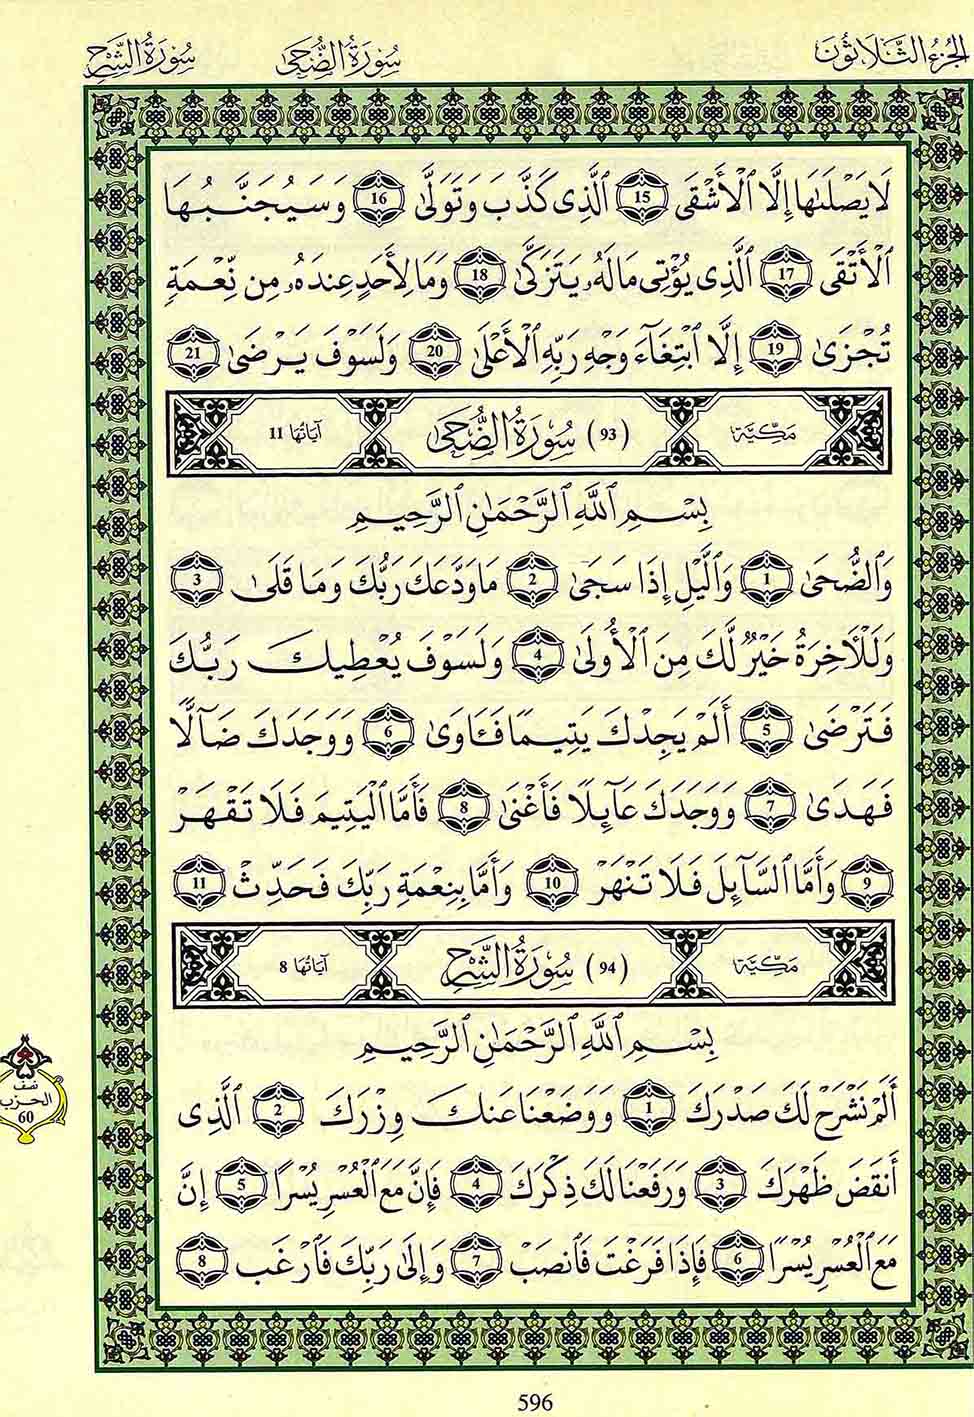 الجزء الثلاثون
سورة الضحى
سورة الشرح
لَا يَصْلَىٰهَا إِلَّا ٱلْأَشْقَى 15 ٱلَّذِى كَذَّبَ وَتَوَلَّىٰ 16 وَسَيُجَنَّبُهَا
ٱلْأَتْقَى 17 ٱلَّذِى يُؤْتِى مَالَهُۥ يَتَزَكَّىٰ 18 وَمَا لِأَحَدٍ عِندَهُۥ مِن نِّعْمَةٍ
تُجْزَىٰ 19 إِلَّا ٱبْتِغَآءَ وَجْهِ رَبِّهِ ٱلْأَعْلَىٰ 20 وَلَسَوْفَ يَرْضَىٰ 21
مكية (93) سورة الضحى آياتها 11
بِسْمِ ٱللَّهِ ٱلرَّحْمَٰنِ ٱلرَّحِيمِ
وَٱلضُّحَىٰ 1 وَٱلَّيْلِ إِذَا سَجَىٰ 2 مَا وَدَّعَكَ رَبُّكَ وَمَا قَلَىٰ 3
وَلَلْـَٔاخِرَةُ خَيْرٌ لَّكَ مِنَ ٱلْأُولَىٰ 4 وَلَسَوْفَ يُعْطِيكَ رَبُّكَ
فَتَرْضَىٰ 5 أَلَمْ يَجِدْكَ يَتِيمًا فَـَٔاوَىٰ 6 وَوَجَدَكَ ضَآلًّا
فَهَدَىٰ 7 وَوَجَدَكَ عَآئِلًا فَأَغْنَىٰ 8 فَأَمَّا ٱلْيَتِيمَ فَلَا تَقْهَرْ
9 وَأَمَّا ٱلسَّآئِلَ فَلَا تَنْهَرْ 10 وَأَمَّا بِنِعْمَةِ رَبِّكَ فَحَدِّثْ 11
مكية (94) سورة الشرح آياتها 8
بِسْمِ ٱللَّهِ ٱلرَّحْمَٰنِ ٱلرَّحِيمِ
أَلَمْ نَشْرَحْ لَكَ صَدْرَكَ 1 وَوَضَعْنَا عَنكَ وِزْرَكَ 2 ٱلَّذِى
أَنقَضَ ظَهْرَكَ 3 وَرَفَعْنَا لَكَ ذِكْرَكَ 4 فَإِنَّ مَعَ ٱلْعُسْرِ يُسْرًا 5 إِنَّ
مَعَ ٱلْعُسْرِ يُسْرًا 6 فَإِذَا فَرَغْتَ فَٱنصَبْ 7 وَإِلَىٰ رَبِّكَ فَٱرْغَب 8
نصف
الحزب
60
596